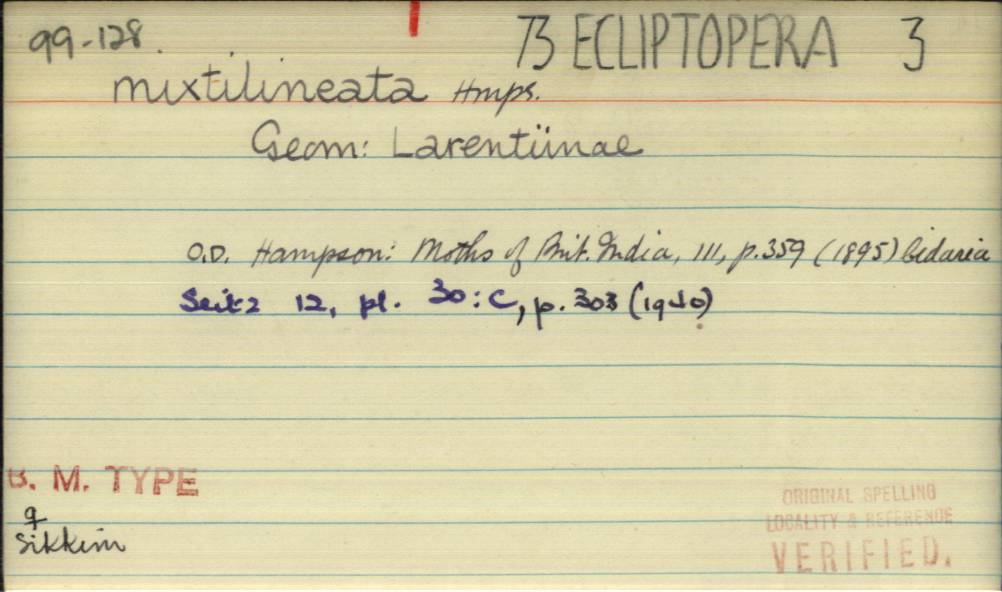 99-128. 73 ECLIPTOPERA 3
mixtilineata Hmps.
Geom: Larentiinae
O.D. Hampson: Moths of Brit. India, III, p.359 (1895) Cidaria
Seitz 12, pl. 30:C, p. 303 (1940)
B. M. TYPE
♀
Sikkim
ORIGINAL SPELLING
LOCALITY & REFERENCE
VERIFIED.